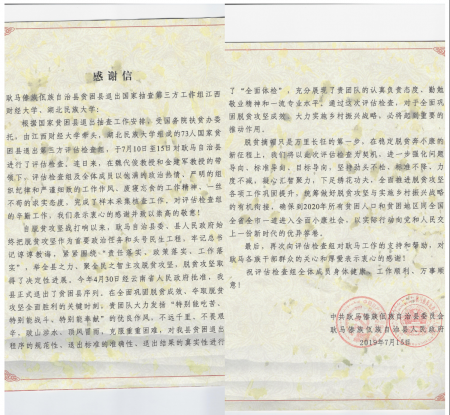 感谢信
耿马傣族佤族自治县贫困县退出国家抽查第三方工作组江西
财经大学、湖北民族大学：
根据国家贫困县退出抽查工作安排，受国务院扶贫办委
托，由江西财经大学牵头、湖北民族大学组成的73人国家贫
困县退出第三方评估检查组，于7月10日至15日对耿马自治县
进行了评估检查。连日来，在魏代俊教授和金建军教授的带
领下，评估检查组及全体成员以饱满的政治热情、严明的组
织纪律和严谨细致的工作作风、废寝忘食的工作精神、一丝
不苟的求实态度，完成了样本采集核查工作，对评估检查组
的辛勤工作，我们表示衷心的感谢并致以崇高的敬意！
自脱贫攻坚战打响以来，耿马自治县委、县人民政府始
终把脱贫攻坚作为重要政治任务和头号民生工程，牢记总书
记谆谆教诲，紧紧围绕“责任落实、政策落实、工作落
实”，举全县之力、聚全民之智主攻脱贫攻坚，脱贫攻坚
取得了决定性进展。今年4月30日经云南省人民政府批准，我
县正式退出了贫困县序列。在全面巩固脱贫成效、夺取脱贫
攻坚全面胜利的关键时刻，贵团队大力发扬“特别能吃苦、
特别能战斗、特别能奉献”的优良作风，不远千里、不畏艰
辛、跋山涉水、栉风沐雨，克服重重困难，对我县贫困县退出
程序的规范性、退出标准的准确性、退出结果的真实性进行
了“全面体检”，充分展现了贵团队的认真负责态度、勤勉
敬业精神和一流专业水平。通过这次评估检查，对于全面巩
固脱贫攻坚成效、大力实施乡村振兴战略，必将起到重要的
推动作用。
脱贫摘帽只是万里长征的第一步。在稳定脱贫奔小康的
新征程上，我们将以此次评估检查为契机，进一步强化问题
导向、标准导向、目标导向，坚持劲头不松、标准不降、力
度不减，凝心汇智聚力、下足绣花功夫，全面推进脱贫攻坚
各项工作巩固提升，统筹做好脱贫攻坚与实施乡村振兴战略
的有机衔接，确保到2020年所有贫困人口和贫困地区同全国
全省全市一道进入全面小康社会，以实际行动向党和人民交
上一份新时代的优异答卷。
最后，再次向评估检查组对耿马工作的支持和帮助，对
耿马各族干部群众的关心和厚爱表示衷心的感谢！
祝评估检查组全体成员身体健康、工作顺利、万事顺
意！
中共耿马傣族佤族自治县委员会
耿马傣族佤族自治县人民政府
2019年7月15日